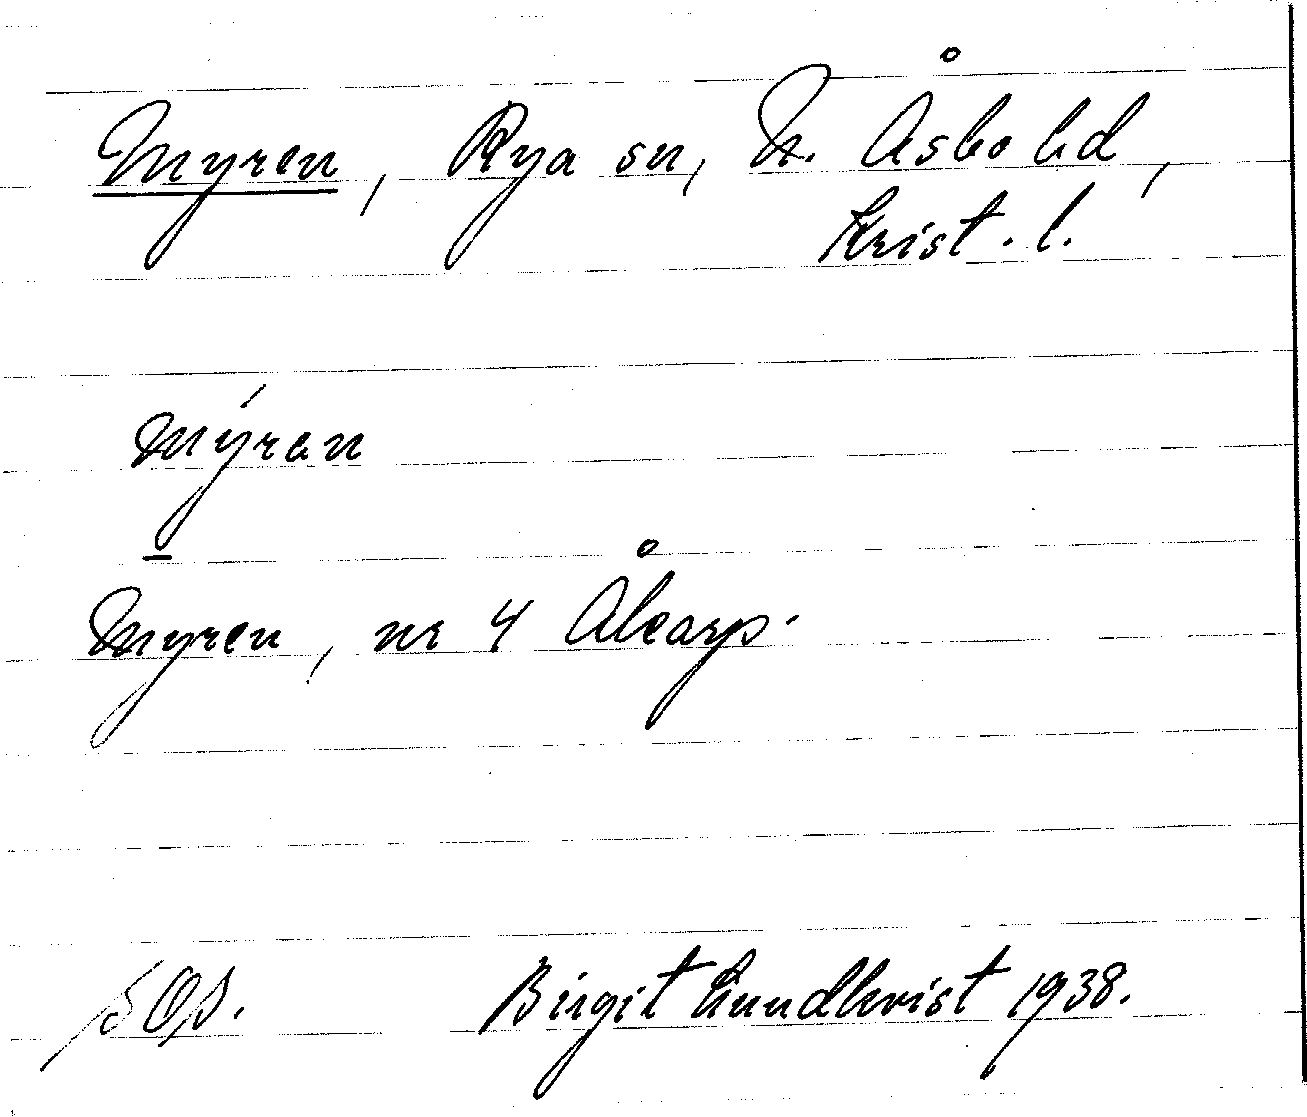 Myren, Rya sn, N. Åsbo hd,
Krist. l.
mýran
Myren, nr 4 Ålcarp.
SOS. Birgit Lundkvist 1938.